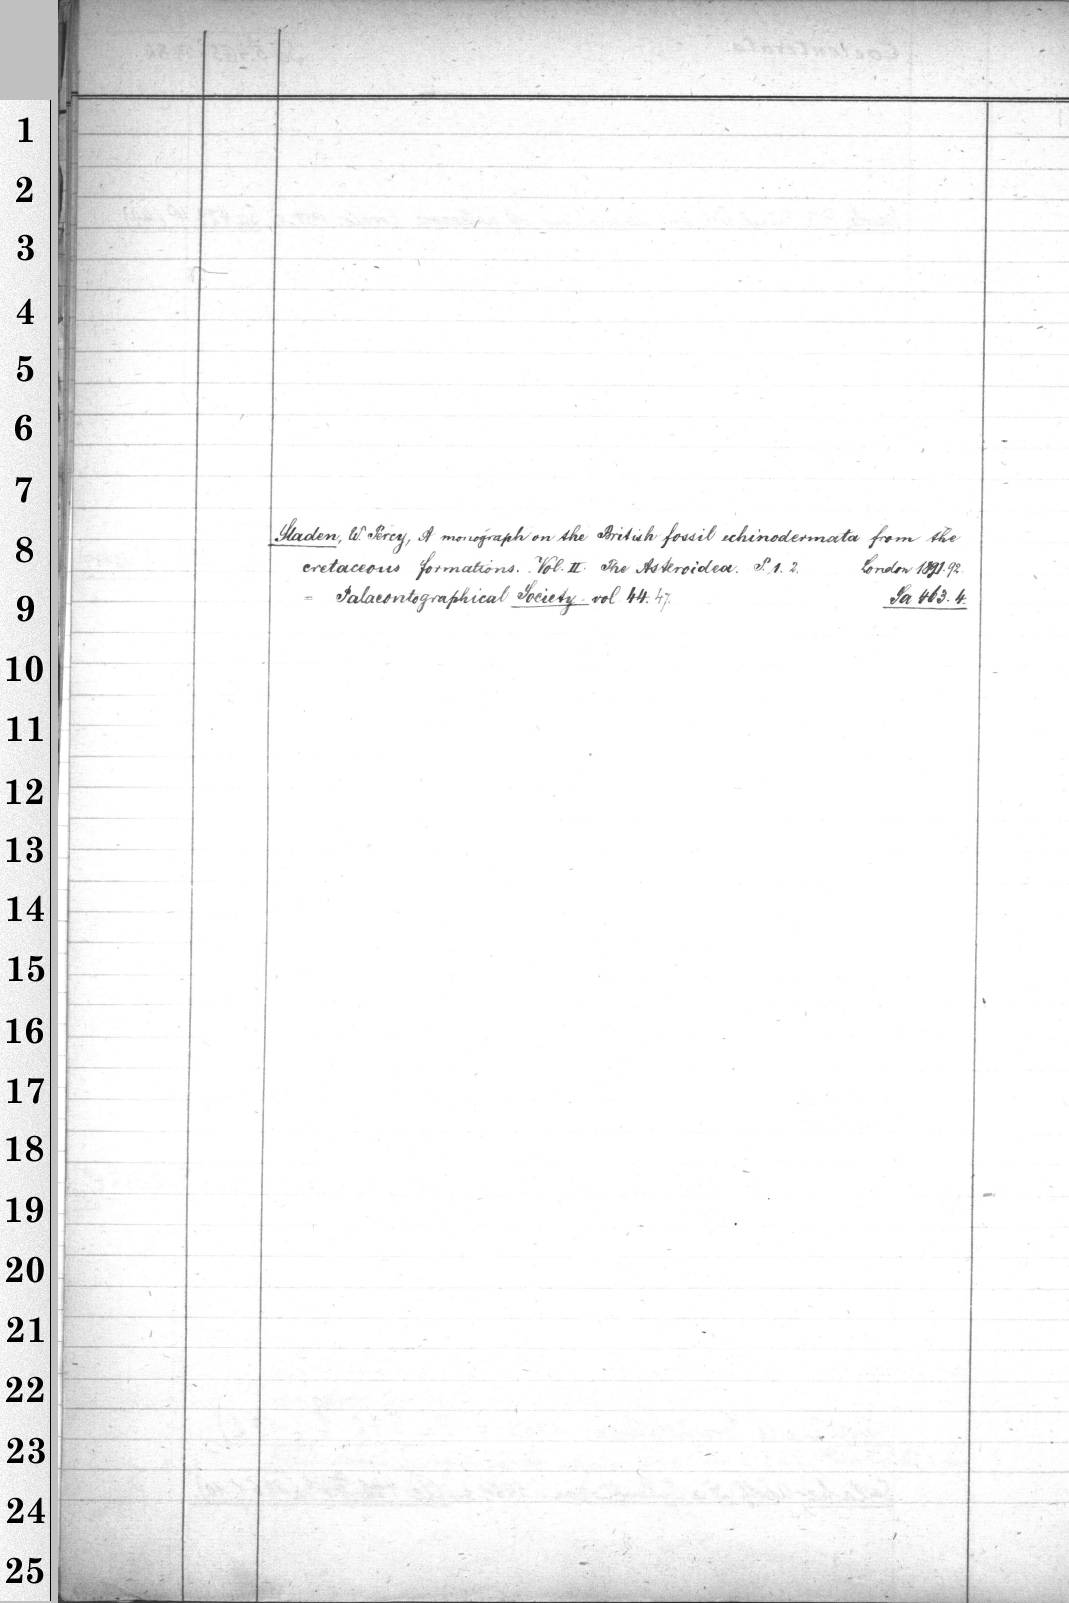 1
2
3
4
5
6
7
Sladen, W. Percy, A monograph on the British fossil echinodermata from the
8
cretaceous formations. Vol. II. The Asteroidea. P. 1. 2. London 1891. 92.
= Palaeontographical Society vol 44. 47. Sa 463. 4.
9
10
11
12
13
14
15
16
17
18
19
20
21
22
23
24
25